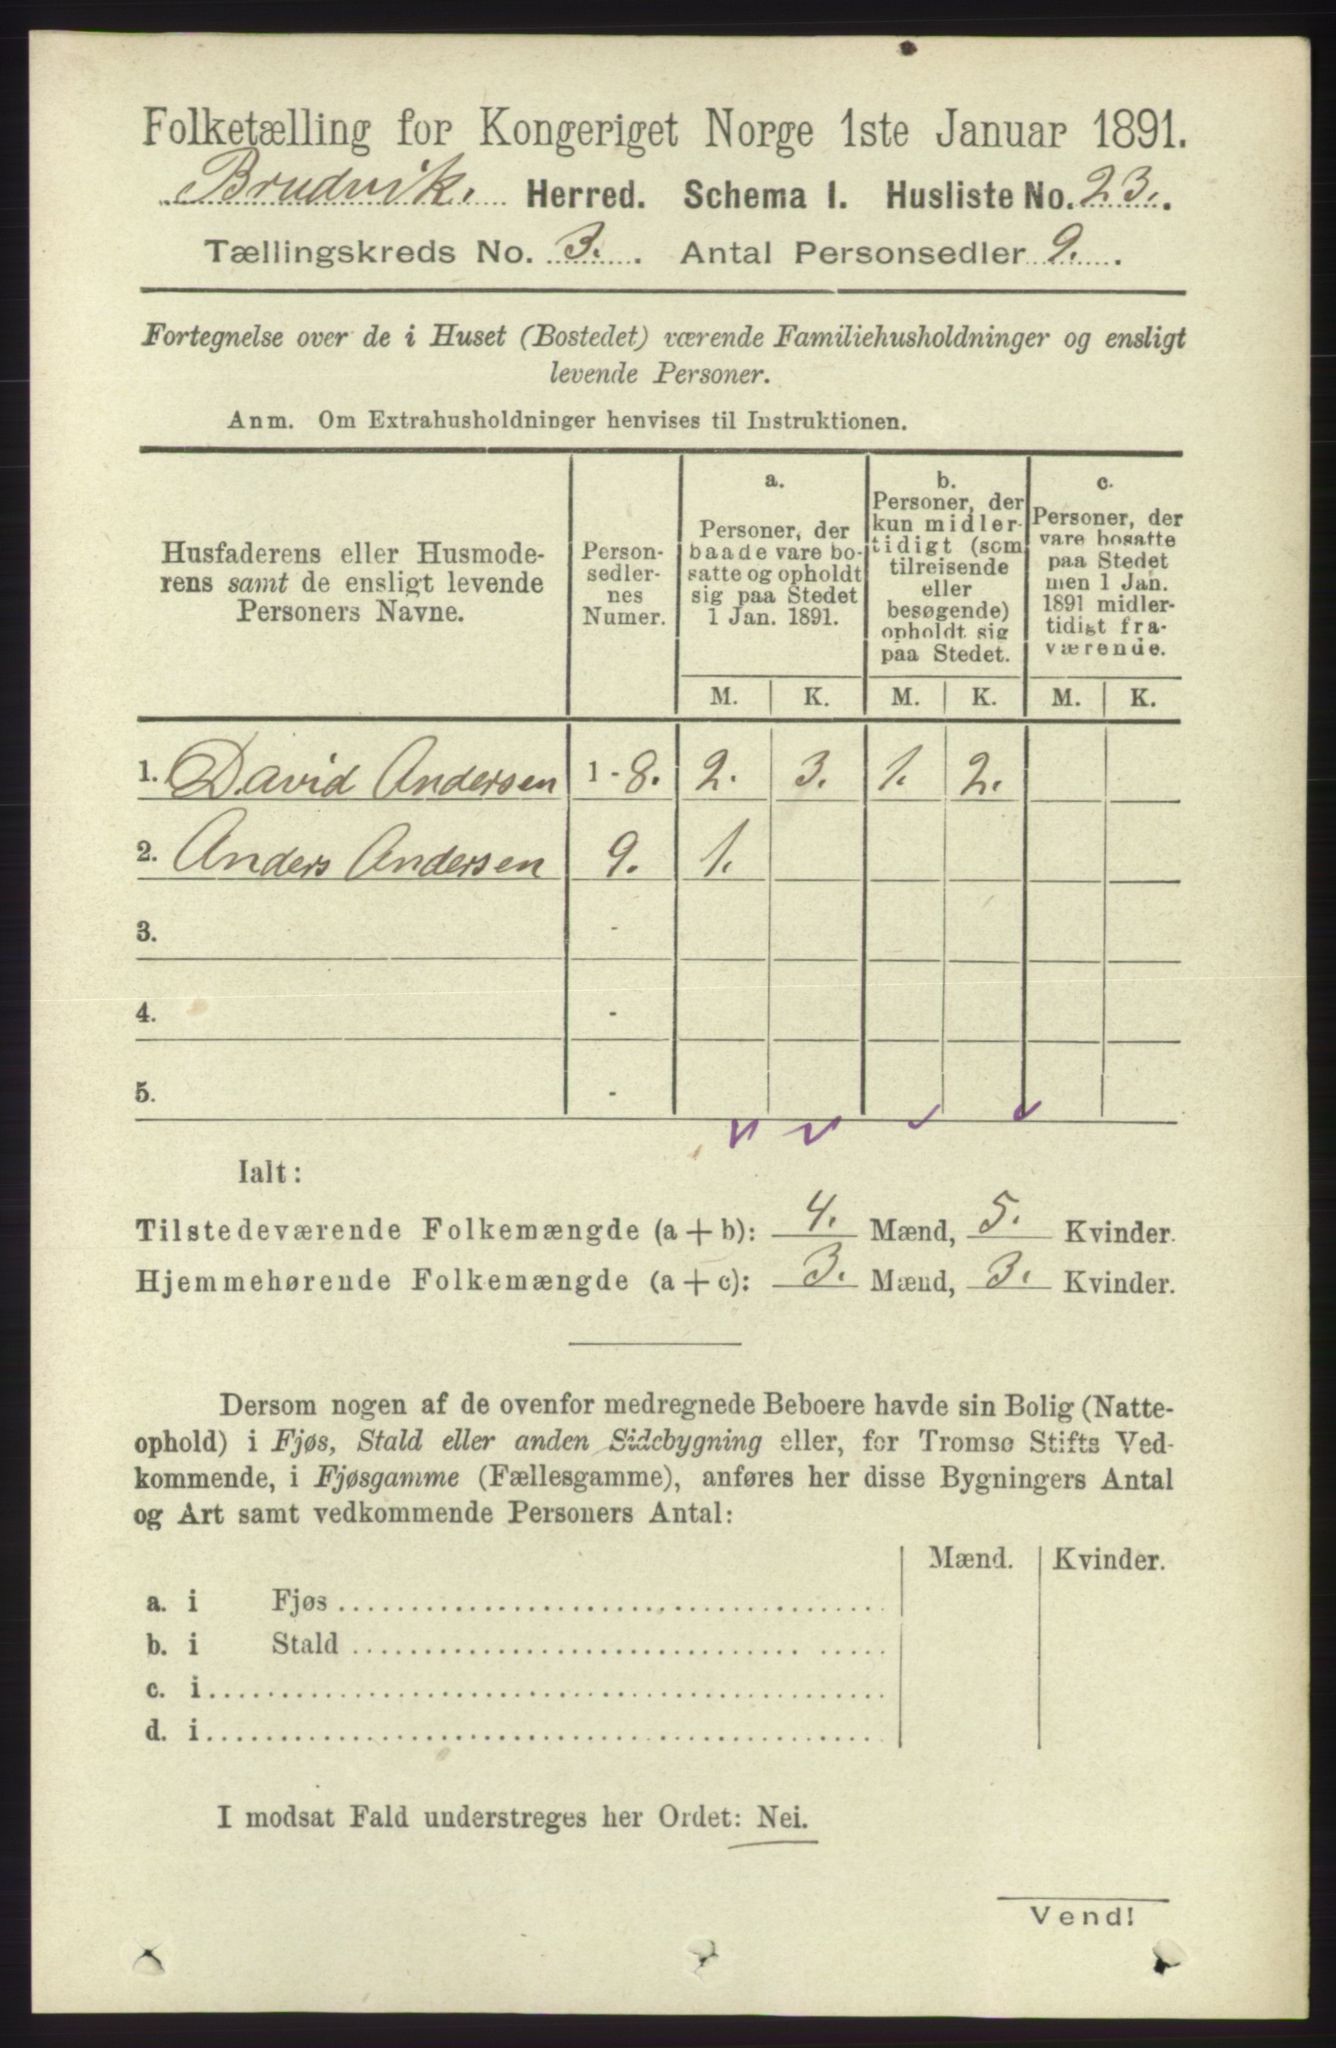 Folketælling for Kongeriget Norge 1ste Januar 1891.
Brudvik. Herred. Schema I. Husliste No. 23.
Tællingskreds No. 3. Antal Personsedler 9.
Fortegnelse over de i Huset (Bostedet) værende Familiehusholdninger og ensligt
levende Personer.
Anm. Om Extrahusholdninger henvises til Instruktionen.
Husfaderens eller Husmode-
rens samt de ensligt levende
Personers Navne.
Person-
sedler-
nes
Numer.
a.
Personer, der
baade vare bo-
satte og opholdt
sig paa Stedet
1 Jan. 1891.
b.
Personer, der
kun midler-
tidigt (som
tilreisende
eller
besøgende)
opholdt sig
paa Stedet.
c.
Personer, der
vare bosatte
paa Stedet
men 1 Jan.
1891 midler-
tidigt fra-
værende.
M. K. M. K. M. K.
1. David Andersen 1 - 8. 2. 3. 1. 2.
2. Anders Andersen 9. 1.
3. -
4. -
5. -
Ialt:
Tilstedeværende Folkemængde (a + b): 4. Mænd, 5. Kvinder.
Hjemmehørende Folkemængde (a + c): 3. Mænd, 3. Kvinder.
Dersom nogen af de ovenfor medregnede Beboere havde sin Bolig (Natte-
ophold) i Fjøs, Stald eller anden Sidebygning eller, for Tromsø Stifts Ved-
kommende, i Fjøsgamme (Fællesgamme), anføres her disse Bygningers Antal
og Art samt vedkommende Personers Antal:
Mænd. Kvinder.
a. i Fjøs
b. i Stald
c. i
d. i
I modsat Fald understreges her Ordet: Nei.
Vend!